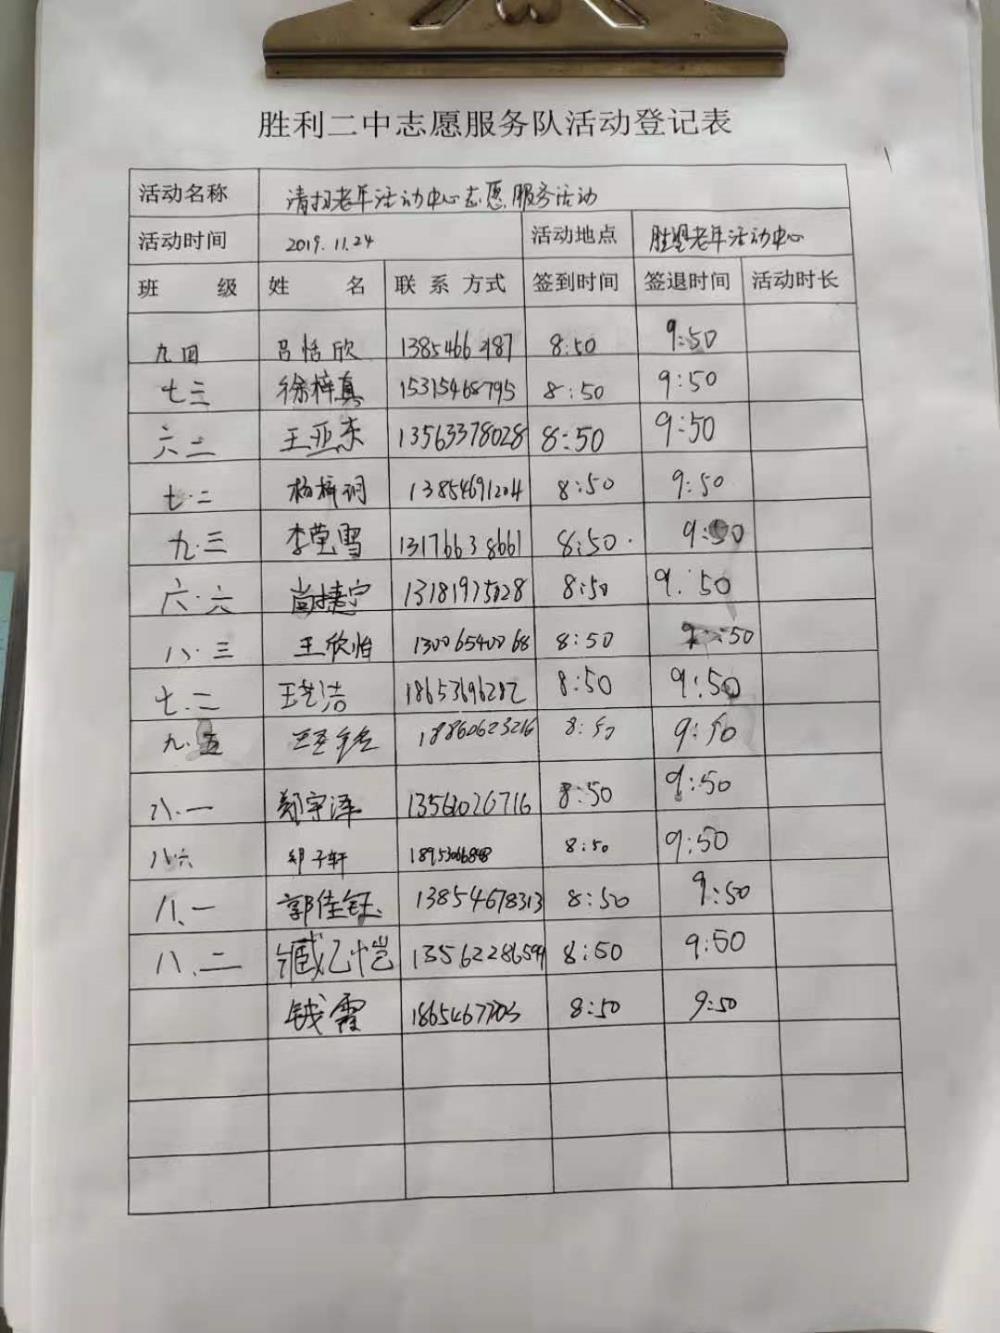 胜利二中志愿服务队活动登记表
活动名称 清扫老年活动中心志愿服务活动
活动时间 2019.11.24 活动地点 胜盟老年活动中心
班 级 姓 名 联 系 方式 签到时间 签退时间 活动时长
九四 吕恬欣 8:50 9:50
七三 徐梓真 15315468795 8:50 9:50
六二 王亚东 13563378028 8:50 9:50
七.二 杨梓玥 13854691204 8:50 9:50
九.三 李莹雪 13176638661 8:50. 9:50
六.六 尚捷宁 13181975028 8:50 9:50
八.三 王欣怡 13006540068 8:50 9:50
七.二 王艺洁 18653696282 8:50 9:50
九.五 18860623216 8:50 9:50
八.一 郑宇泽 13561026716 8:50 9:50
八六 子轩 8:50 9:50
八.一 郭佳钰 13854678313 8:50 9:50
八.二 臧乙恺 13562286599 8:50 9:50
钱霞 8:50 9:50